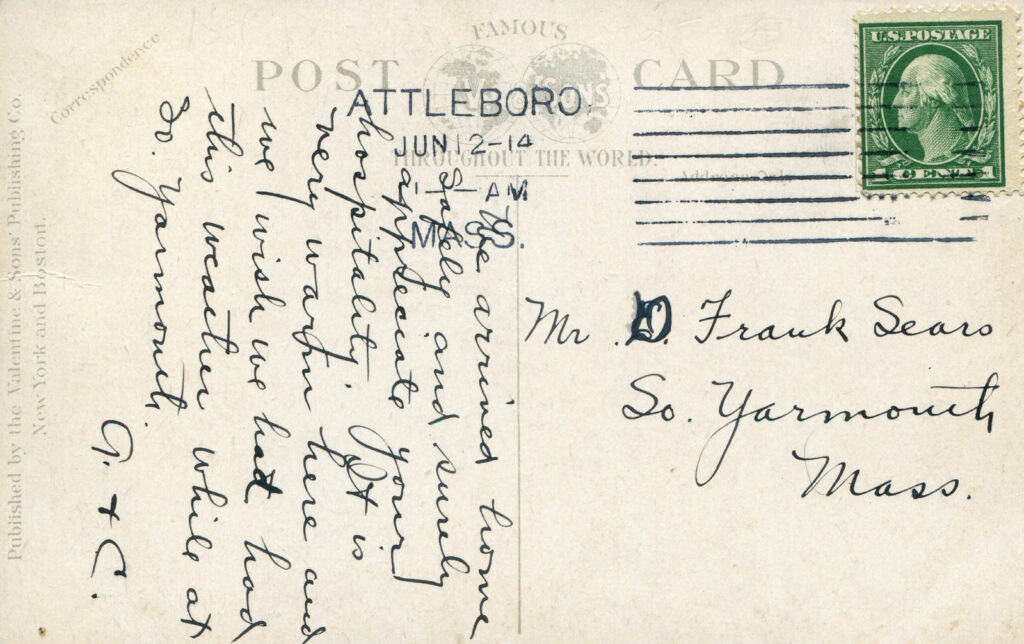 FAMOUS
POST CARD
THROUGHOUT THE WORLD.
Correspondence
Address Only
Published by the Valentine & Sons' Publishing Co.
New York and Boston.
U.S. POSTAGE
1 CENT 1
ATTLEBORO.
JUN 12-14
1 — AM
MASS.
We arrived home
safely and surely
appreciate your
hospitality. It is
very warm here and
we wish we had had
this weather while at
So. Yarmouth.
G. + C.
Mr. D. Frank Sears
So. Yarmouth
Mass.